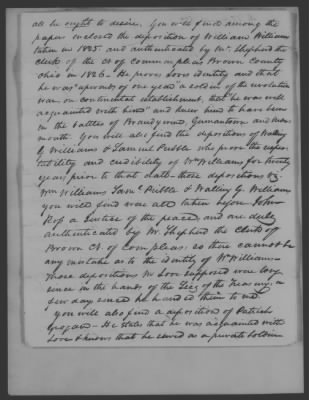 all he ought to desire. You will find among the
paper enclosed the deposition of William Williams
taken in 1825 and authenticated by Mr. Shepherd the
clerk of the Ct of common pleas Brown County
Ohio in 1826 - He proves Loves identity and that
he was "upwards of one year" a soldier of the revolution
war, on continental establishment, that "he was well
acquainted with him" and knew him to have been
in the battles of Brandywine, Germantown and Mon
mouth. You will also find the depositions of
G. Williams & Samuel Pribble who prove the
and credibility of Wm Williams for twenty
years prior to that date - those depositions
Wm Williams Saml Pribble & G. Williams
you will find were all taken before John
a Justice of the peace, and are duly
authenticated by Mr Shepherd the Clerk of
Brown Ct. of com pleas; so there cannot be
any mistake as to the identity of Wm Williams -
Those depositions Mr Love supposed were long
since in the hands of the Secy of the Treasury; a
few days since he handed them to me.
You will also find a deposition of Patrick
- He states that he was acquainted with
Love & knows that he served as a private soldier